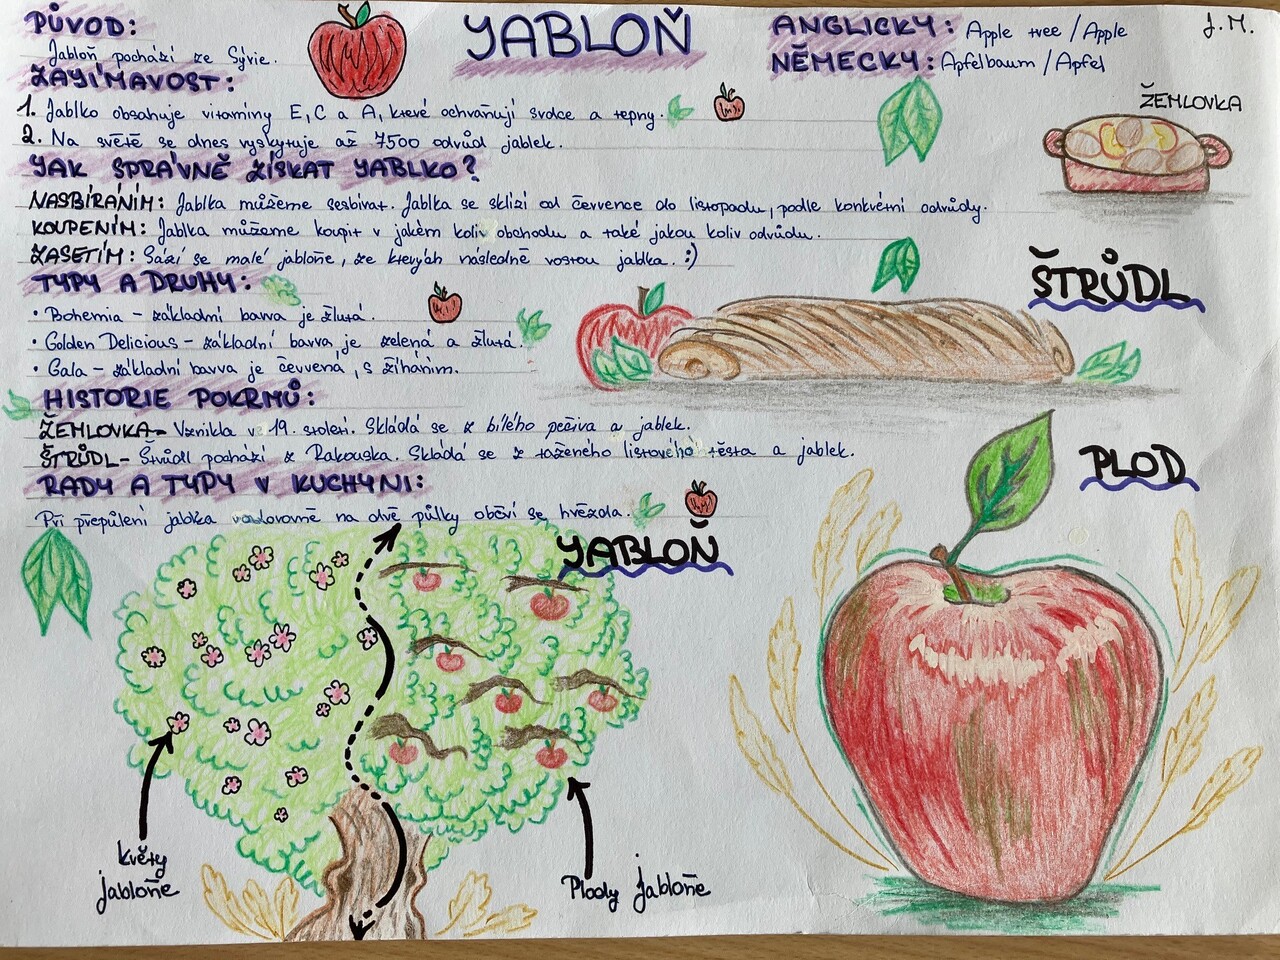 PŮVOD:
Jabloň pochází ze Sýrie.
YABLOŇ
ANGLICKY: Apple tree / Apple
NĚMECKY: Apfelbaum / Apfel
J. M.
ZAYÍMAVOST:
1. Jablko obsahuje vitamíny E, C a A, které ochraňují srdce a tepny.
2. Na světě se dnes vyskytuje až 7500 odrůd jablek.
ŽEMLOVKA
YAK SPRÁVNĚ ZÍSKAT YABLKO?
NASBÍRÁNÍM: Jablka můžeme sesbírat. Jablka se sklízí od července do listopadu, podle konkrétní odrůdy.
KOUPENÍM: Jablka můžeme koupit v jakém koliv obchodu a také jakou koliv odrůdu.
ZASETÍM: Sází se malé jabloňe, ze kterých následně rostou jablka. :)
TYPY A DRUHY:
• Bohemia – základní barva je žlutá.
• Golden Delicious – základní barva je zelená a žlutá.
• Gala – základní barva je červená, s žíháním.
ŠTRŮDL
HISTORIE POKRMŮ:
ŽEMLOVKA – Vznikla v 19. století. Skládá se z bílého pečiva a jablek.
ŠTRŮDL – Štrůdl pochází z Rakouska. Skládá se z taženého listového těsta a jablek.
RADY A TYPY V KUCHYNI:
Při přepůlení jablka vodorovně na dvě půlky oběví se hvězda.
YABLOŇ
PLOD
květy
jabloňe
Plody jabloňe